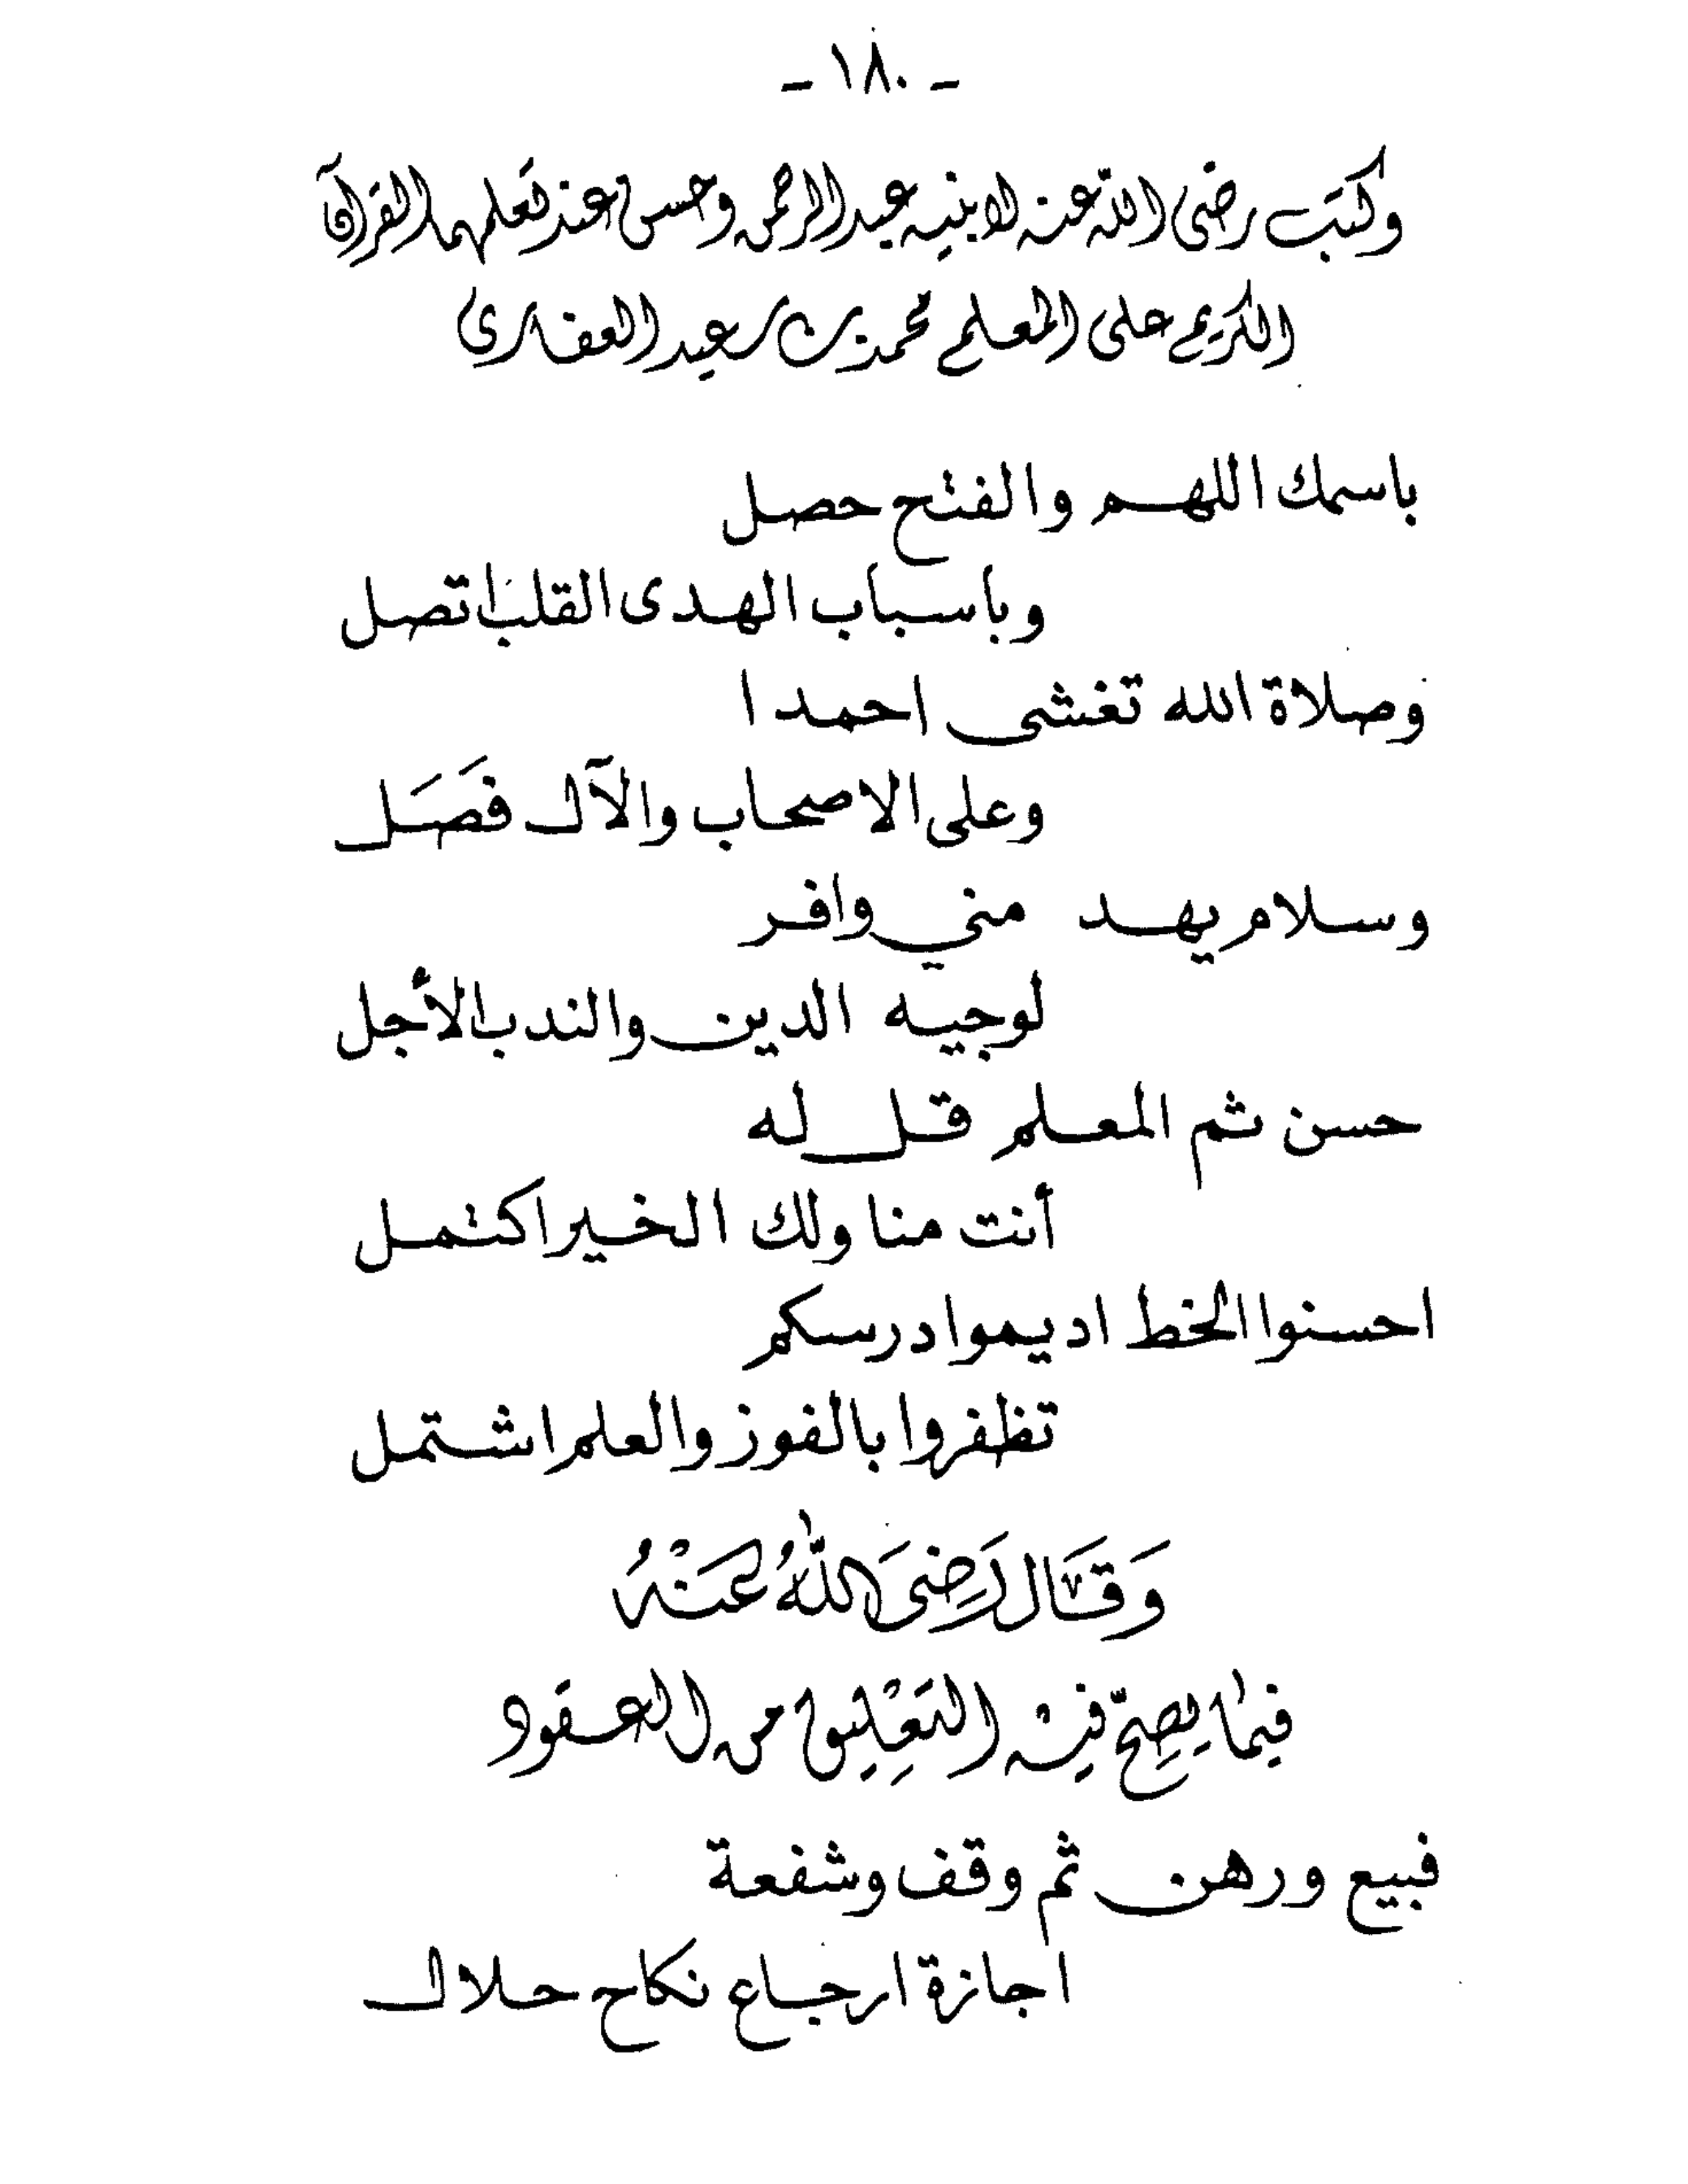 - ١٨٠ -
وكتب رضى الله عنه لابنيه عبدالرحمن وحسن عند تعلمهما القرآن
الكريم على المعلم محمد بن سعيد العفارى
باسمك اللهم والفتح حصل
وباسباب الهدى القلب اتصل
وصلاة الله تغشى احمدا
وعلى الاصحاب والآل فَصَل
وسلام يهد مني وافر
لوجيه الدين والندب الأجل
حسن ثم المعلم قل له
أنت منا ولك الخير اكتمل
احسنوا الخط اديموا درسكم
تظفروا بالفوز والعلم اشتمل
وَقَال رَضِىَ اللّٰهُ عَنْهُ
فيما يصِحّ فيْه التَعْلِيق من العقود
فبيع ورهن ثم وقف وشفعة
اجازة ارجاع نكاح حلال